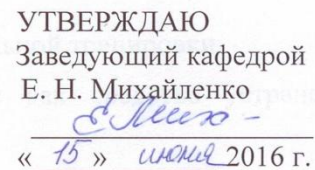 УТВЕРЖДАЮ
Заведующий кафедрой
Е. Н. Михайленко
« 15 » июня 2016 г.